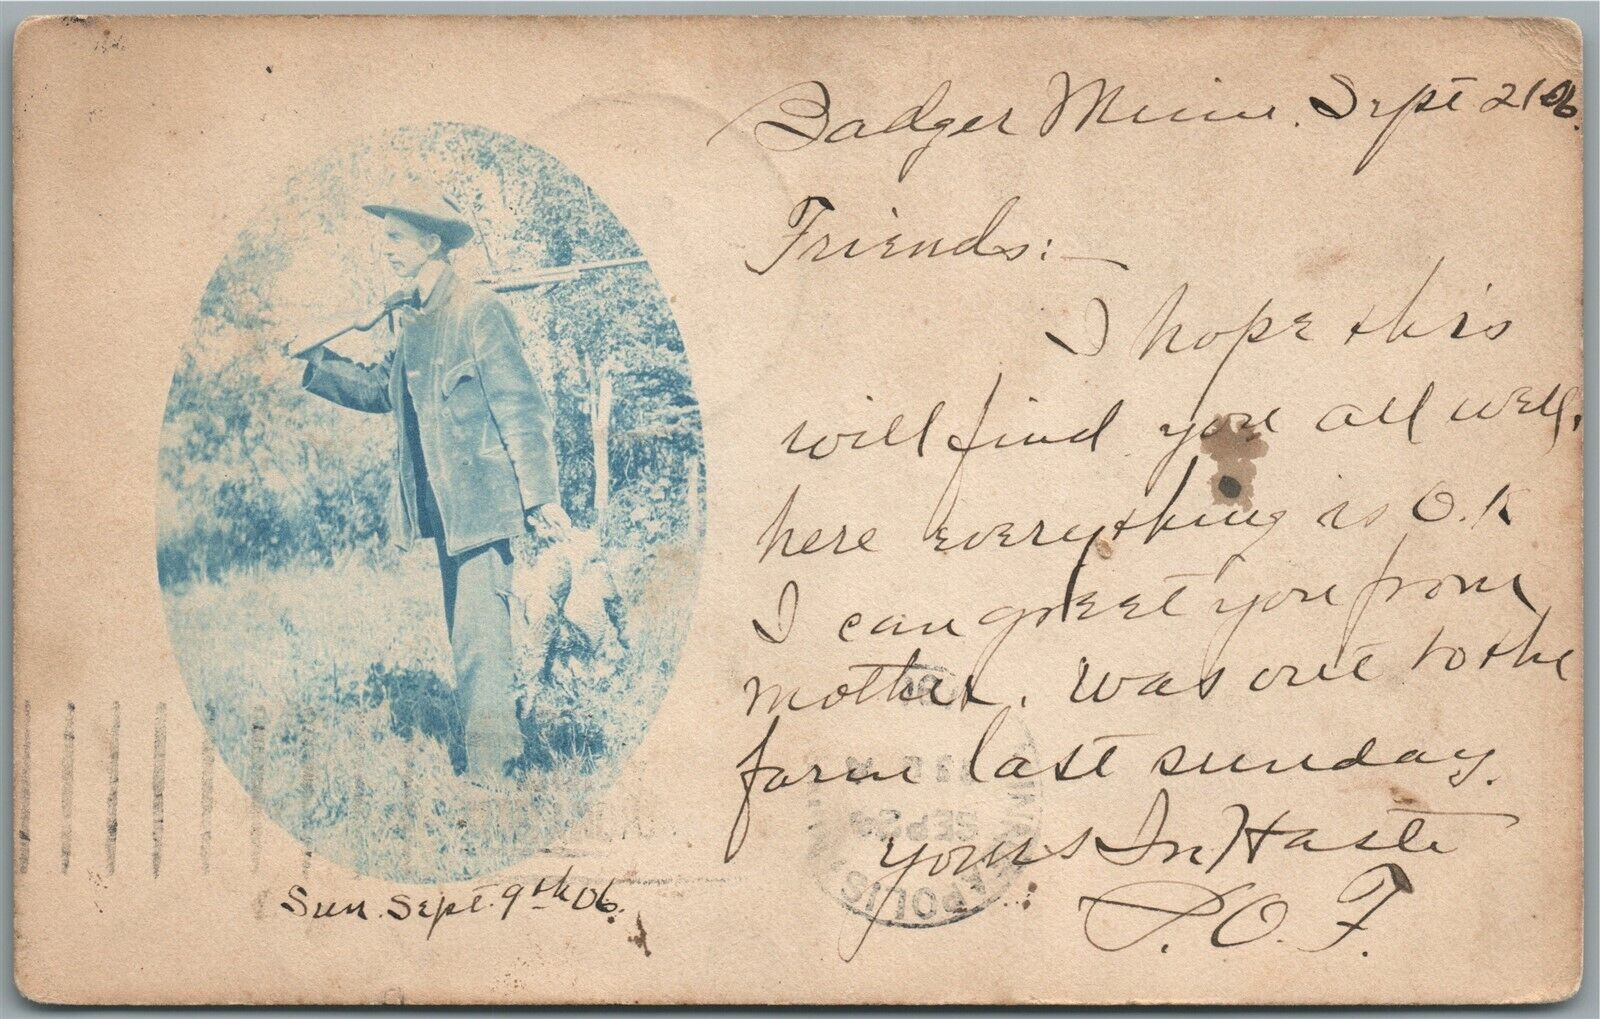 Badger Minn. Sept 21 06.
Friends:—
I hope this
will find you all well,
here everything is O.K
I can greet you from
mother. Was out to the
farm last sunday.
Yours In Haste
O. F.
Sun. Sept. 9th 06.